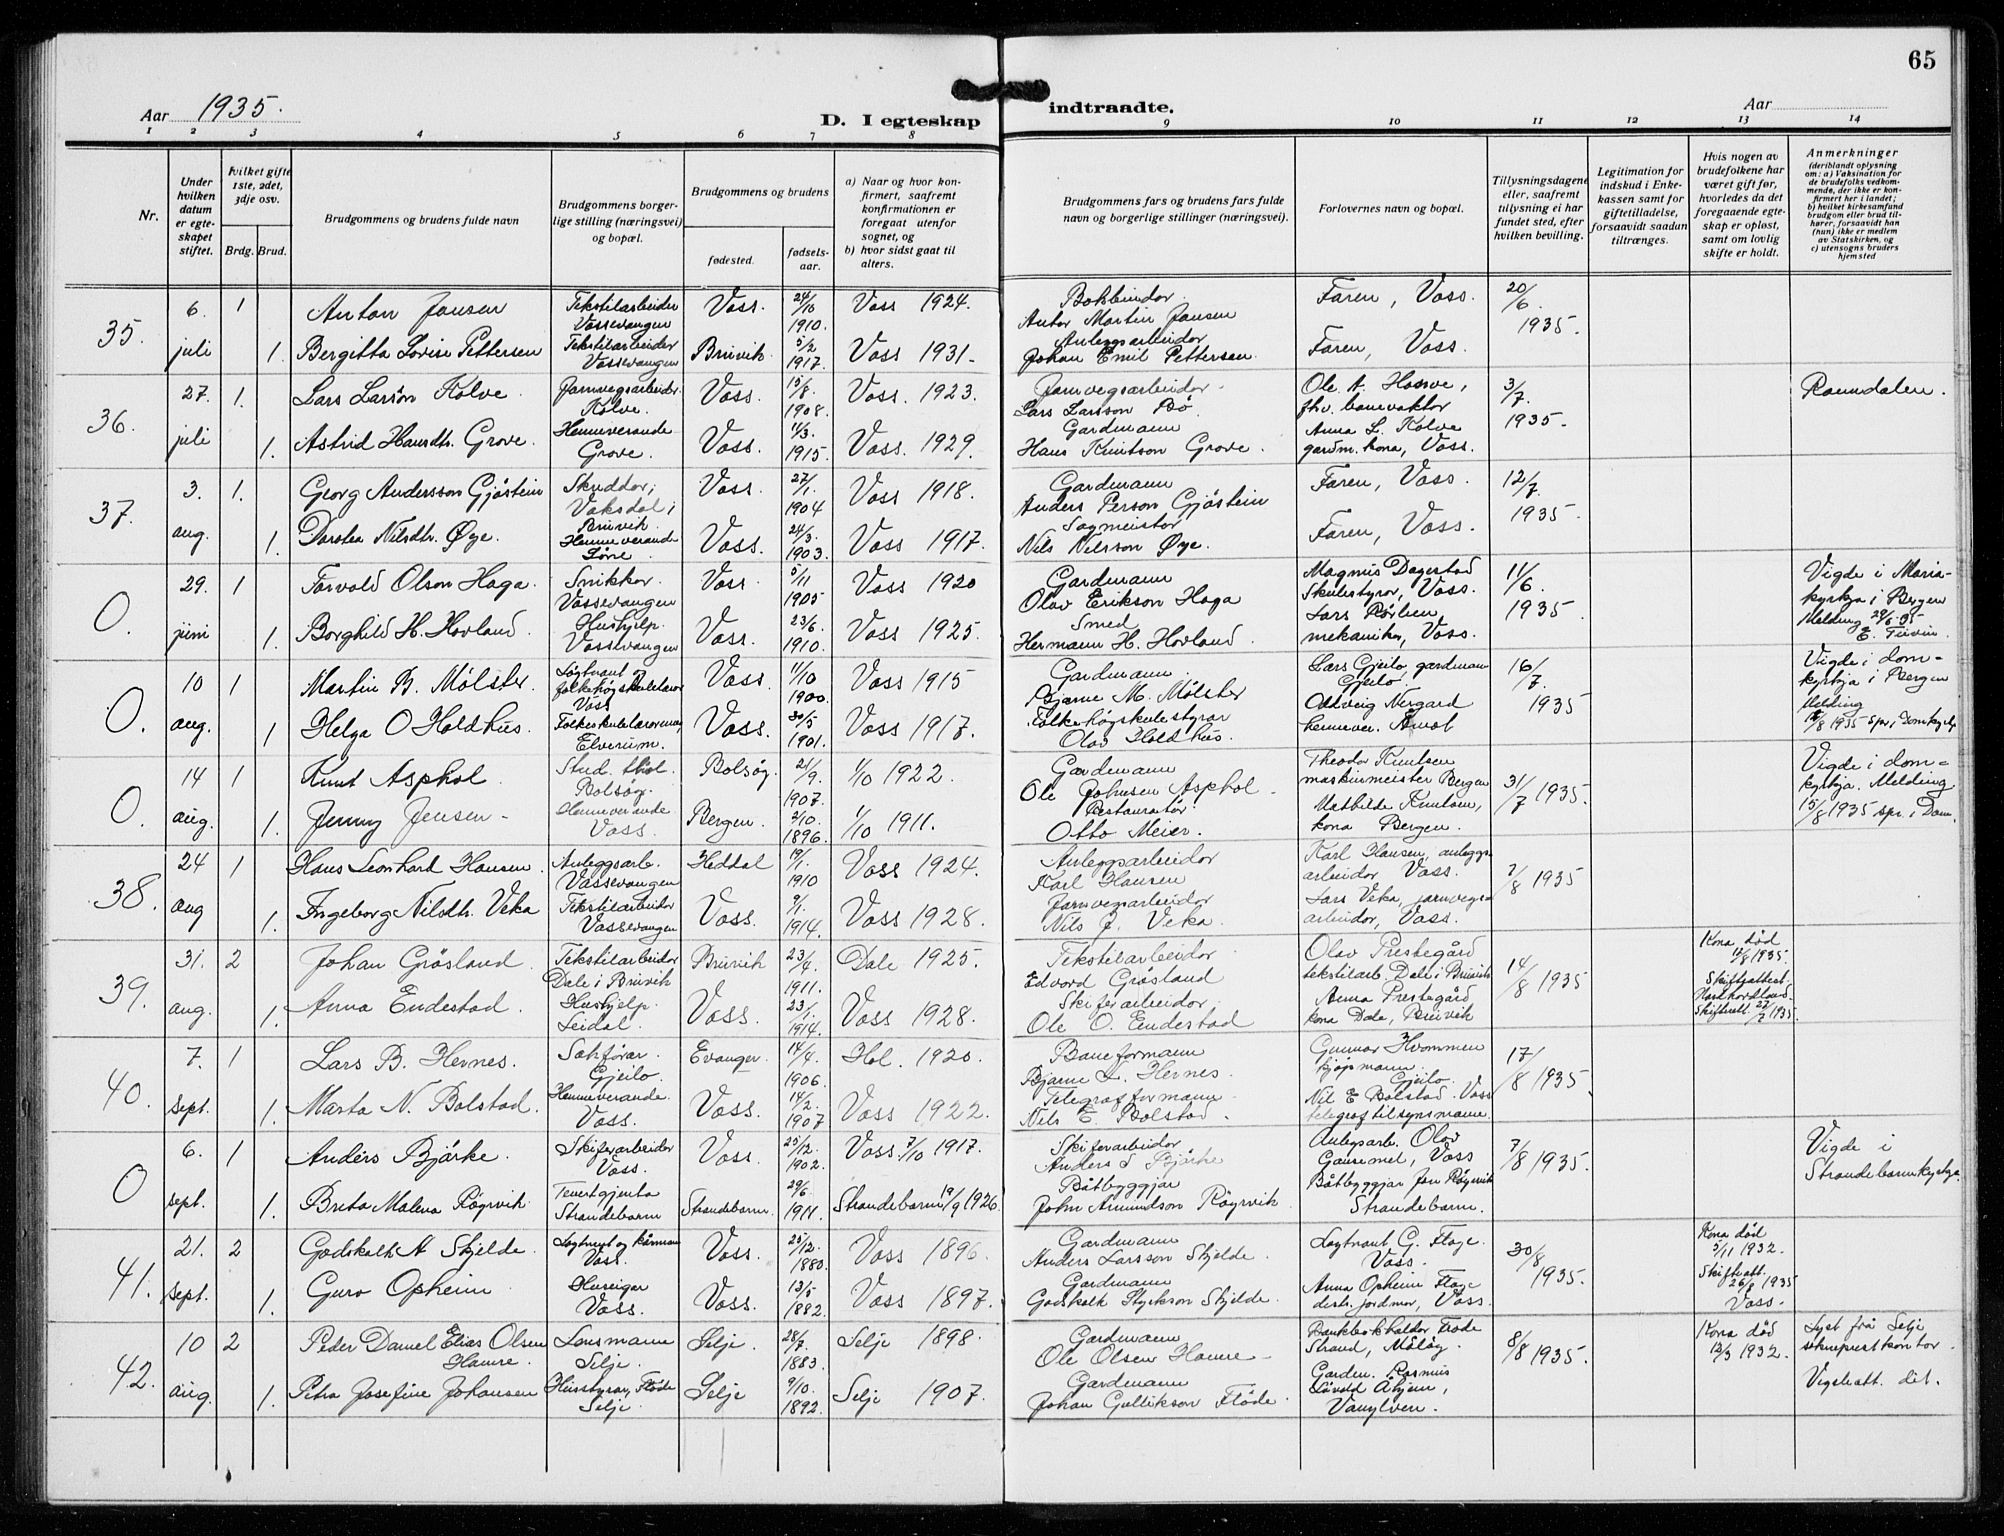 65
Aar 1935.
D. I egteskap
indtraadte.
Aar
1 2 3 4 5 6 7 8
9 10 11 12 13 14
Nr.
Under hvilken datum er egteskapet stiftet.
hvilket gifte 1ste, 2det, 3dje osv.
Brdg. Brud.
Brudgommens og brudens fulde navn
Brudgommens borgerlige stilling (næringsvei) og bopæl.
Brudgommens og brudens
fødested.
fødselsaar.
a) Naar og hvor konfirmert, saafremt konfirmationen er foregaat utenfor sognet, og
b) hvor sidst gaat til alters.
Brudgommens fars og brudens fars fulde navn og borgerlige stillinger (næringsvei).
Forlovernes navn og bopæl.
Tillysningsdagene eller, saafremt tillysning ei har fundet sted, efter hvilken bevilling.
Legitimation for indskud i Enkekassen samt for giftetilladelse, forsaavidt saadan tiltrænges.
Hvis nogen av brudefolkene har været gift før, hvorledes da det foregaaende egteskap er opløst, samt om lovlig skifte er holdt.
Anmerkninger
(deriblandt oplysning om: a) Vaksination for de brudefolks vedkommende, der ikke er konfirmert her i landet; b) hvilket kirkesamfund brudgom eller brud tilhører, forsaavidt han (hun) ikke er medlem av Statskirken, og c) utensogns bruders hjemsted
35. 6. juli 1 Anton Jansen Tekstilarbeider Vossevangen Voss. 24/10 1910. Voss 1924. Bokbindar Anton Martin Jansen Faren, Voss. 20/6 1935.
1. Bergitta Lovise Pettersen Tekstilarbeider Vossevangen Bruvik 5/2 1917. Voss 1931. Anleggsarbeidar Johan Emil Pettersen. Faren, Voss.
36. 27. juli 1. Lars Larsson Kolve Jarnvegsarbeidar Kolve. Voss. 15/8 1908. Voss. 1923. Jarnvegsarbeidar Lars Larsson Bø. Ole A. Hosve, fhv. banevaktar 3/7 1935. Raundalen.
1. Astrid Hansdtr. Grove. Heimeverande Grove. Voss. 1/3. 1915. Voss. 1929. Gardmann Hans Knutson Grove. Anna L. Kolve gardm. kona, Voss.
37. 3. aug. 1. Georg Andersson Gjøstein Skreddar, Vaksdal, Bruvik. Voss. 27/1. 1904 Voss 1918. Gardmann Anders Person Gjøstein Faren, Voss. 12/7 1935.
1. Dorotea Nilsdtr. Øye. Heimeverande Voss. 24/3. 1903. Voss 1917. Sagmeistar Nils Nilsson Øye. Faren, Voss.
0. 29. juni 1 Torvald Olson Haga. Snikkar. Vossevangen Voss. 5/11 1905 Voss 1920 Gardmann Olav Erikson Haga Magnus Dagestad Skulestyrar, Voss. 11/6. 1935
1. Borghild H. Hovland. Hushjelp. Vossevangen Voss. 23/6 1910. Voss 1925. Smed Hermann H. Hovland. Lars Rørlien, mekanikar, Voss.
Vigde i Mariakyrkja i Bergen Melding 29/6-35
0. 10 aug. 1 Martin B. Mølster. Løytnant og folkehøgskulelærar Voss Voss. 11/10 1900. Voss 1915 Gardmann Bjarne M. Mølster Lars Gjeilo, gardmann Gjeilo. 16/7. 1935
1 Helga O Holdhus. Folkeskulelærarinna, Elverum. Voss. 30/5 1901. Voss 1917. Folkehøgskulestyrar Olav Holdhus. Oddveig Nergard
Vigde i domkyrkja i Bergen Melding /8 1935 spr. i Domkyrkj.
0. 14 aug. 1 Knut Asphol. Stud. theol. Bolsøy. Bolsøy. 21/9. 1907. 1/10 1922. Gardmann Ole Johnsen Asphol Theodor Knutsen maskinmeister Bergen 31/7 1935.
1. Jenny Jensen. Heimeverande Voss. Bergen. 2/10. 1896. 1/10 1911. Restauratør Otto Meier. Mathilde Knutsen, kona Bergen.
Vigde i domkyrkja. Melding 15/8 1935 spr. i Dom.
38. 24 aug 1 Hans Leonhard Hansen Anleggsarb. Vossevangen Heddal 19/1. 1910 Voss 1924. Anleggsarbeidar Karl Hansen Karl Hansen, anleggsarbeidar Voss. 2/8 1935
1. Ingeborg Nilsdtr. Veka Tekstilarbeidar Vossevangen Voss. 9/1. 1914. Voss 1928. Jarnvegsarbeidar Nils J. Veka. Lars Veka, jarnvegsarbeidar, Voss.
39. 31. aug. 2 Johan Grøsland Tekstilarbeidar Dale i Bruvik Bruvik 23/4. 1911. Dale 1925. Tekstilarbeidar Edvard Grøsland Olav Prestegård tekstilarb. Dale i Bruvik 14/8 1935
1. Anna Endestad Hushjelp. Seidal. Voss. 23/1. 1914. Voss 1928. Skiferarbeidar Ole O. Endestad Anna Prestegård kona Dale, Bruvik
Kona død 12/8 1935. Skifteattest. Nordhordland. Skifterett 27/7 1935.
40. 7. sept. 1 Lars B. Hernes. Sakførar. Gjeilo. Evanger. 14/4. 1906. Hol. 1920. Baneformann Bjarne L. Hernes. Gunnar Hvammen kjøpmann Gjeilo. 17/8 1935.
1. Marta N. Bolstad. Heimeverande. Voss. Voss. 14/2. 1907 Voss 1922. Telegrafformann Nils E. Bolstad. Nils E Bolstad. Voss telegraftilsynsmann.
0 6. sept. 1 Anders Bjørke. Skiferarbeidar Voss. Voss. 25/12. 1902. Voss. 7/10 1917. Skiferarbeidar Anders S Bjørke Anlegsarb. Olav Gausemel, Voss 7/8 1935.
1. Brita Malena Røyrvik Tenestgjenta Strandebarm Strandebarm. 29/6. 1911. Strandebarm 19/9 1926. Båtbyggjar John Amundson Røyrvik Båtbyggjar Jon Røyrvik Strandebarm.
Vigde i Strandebarm kyrkja.
41. 21. sept. 2 Godskalk A Skjelde. Løytnant og kårmann Voss. Voss. 25/12. 1880. Voss 1896. Gardmann Anders Larsson Skjelde. Løytnant G. Flage. Voss. 30/8 1935.
1. Guro Opheim Huseigar Voss. Voss. 13/5 1882. Voss 1897. Gardmann Godskalk Styrkson Skjelde. Anna Opheim Flage distr. jordmor, Voss.
Kona død 5/11 1932. Skifteatt. 26/8 1935 Voss.
42. 10 aug. 2 Peder Daniel Elias Olsen Hamre. Lensmann Selje. Selje. 28/7. 1883. Selje 1898. Gardmann Ole Olsen Hamre Bankbokholdar Frode Strand, Måløy. 8/8 1935.
1. Petra Josefine Johansen Husstyrar, Fløde Selje. Selje 9/10. 1892. Selje 1907. Gardmann Johan Gullikson Fløde. Gardm. Rasmus Åhjem, Vanylven.
Kona død 12/3 1932. Lyst frå Selje sokneprestkontor. Vigsleatt. dit.